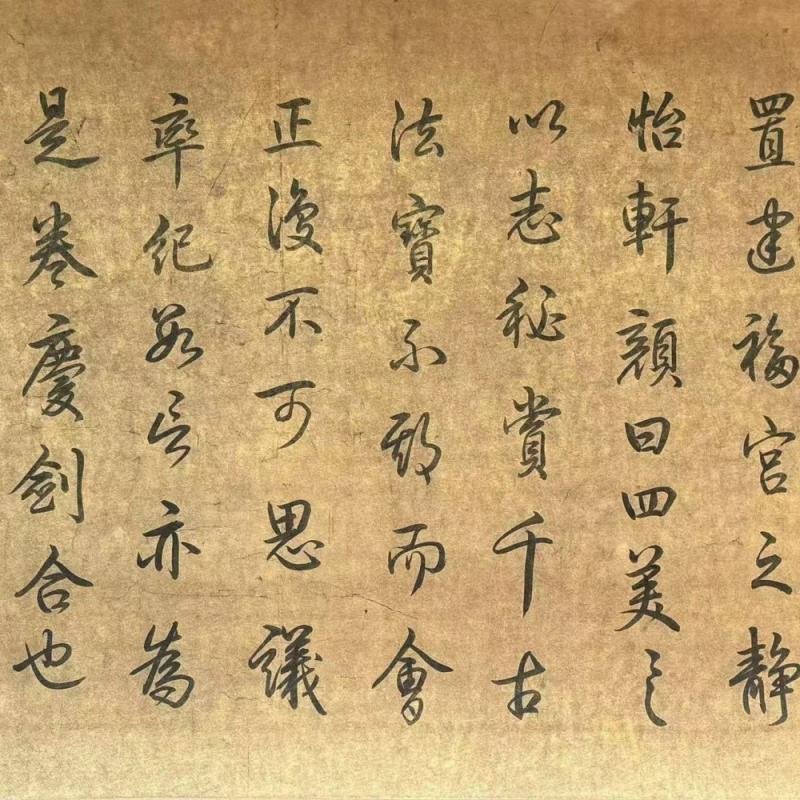 置建福宫之静
怡軒顔曰四美之
以志秘賞千古
法寶不期而會
正復不可思議
率紀數言亦為
是卷慶劍合也